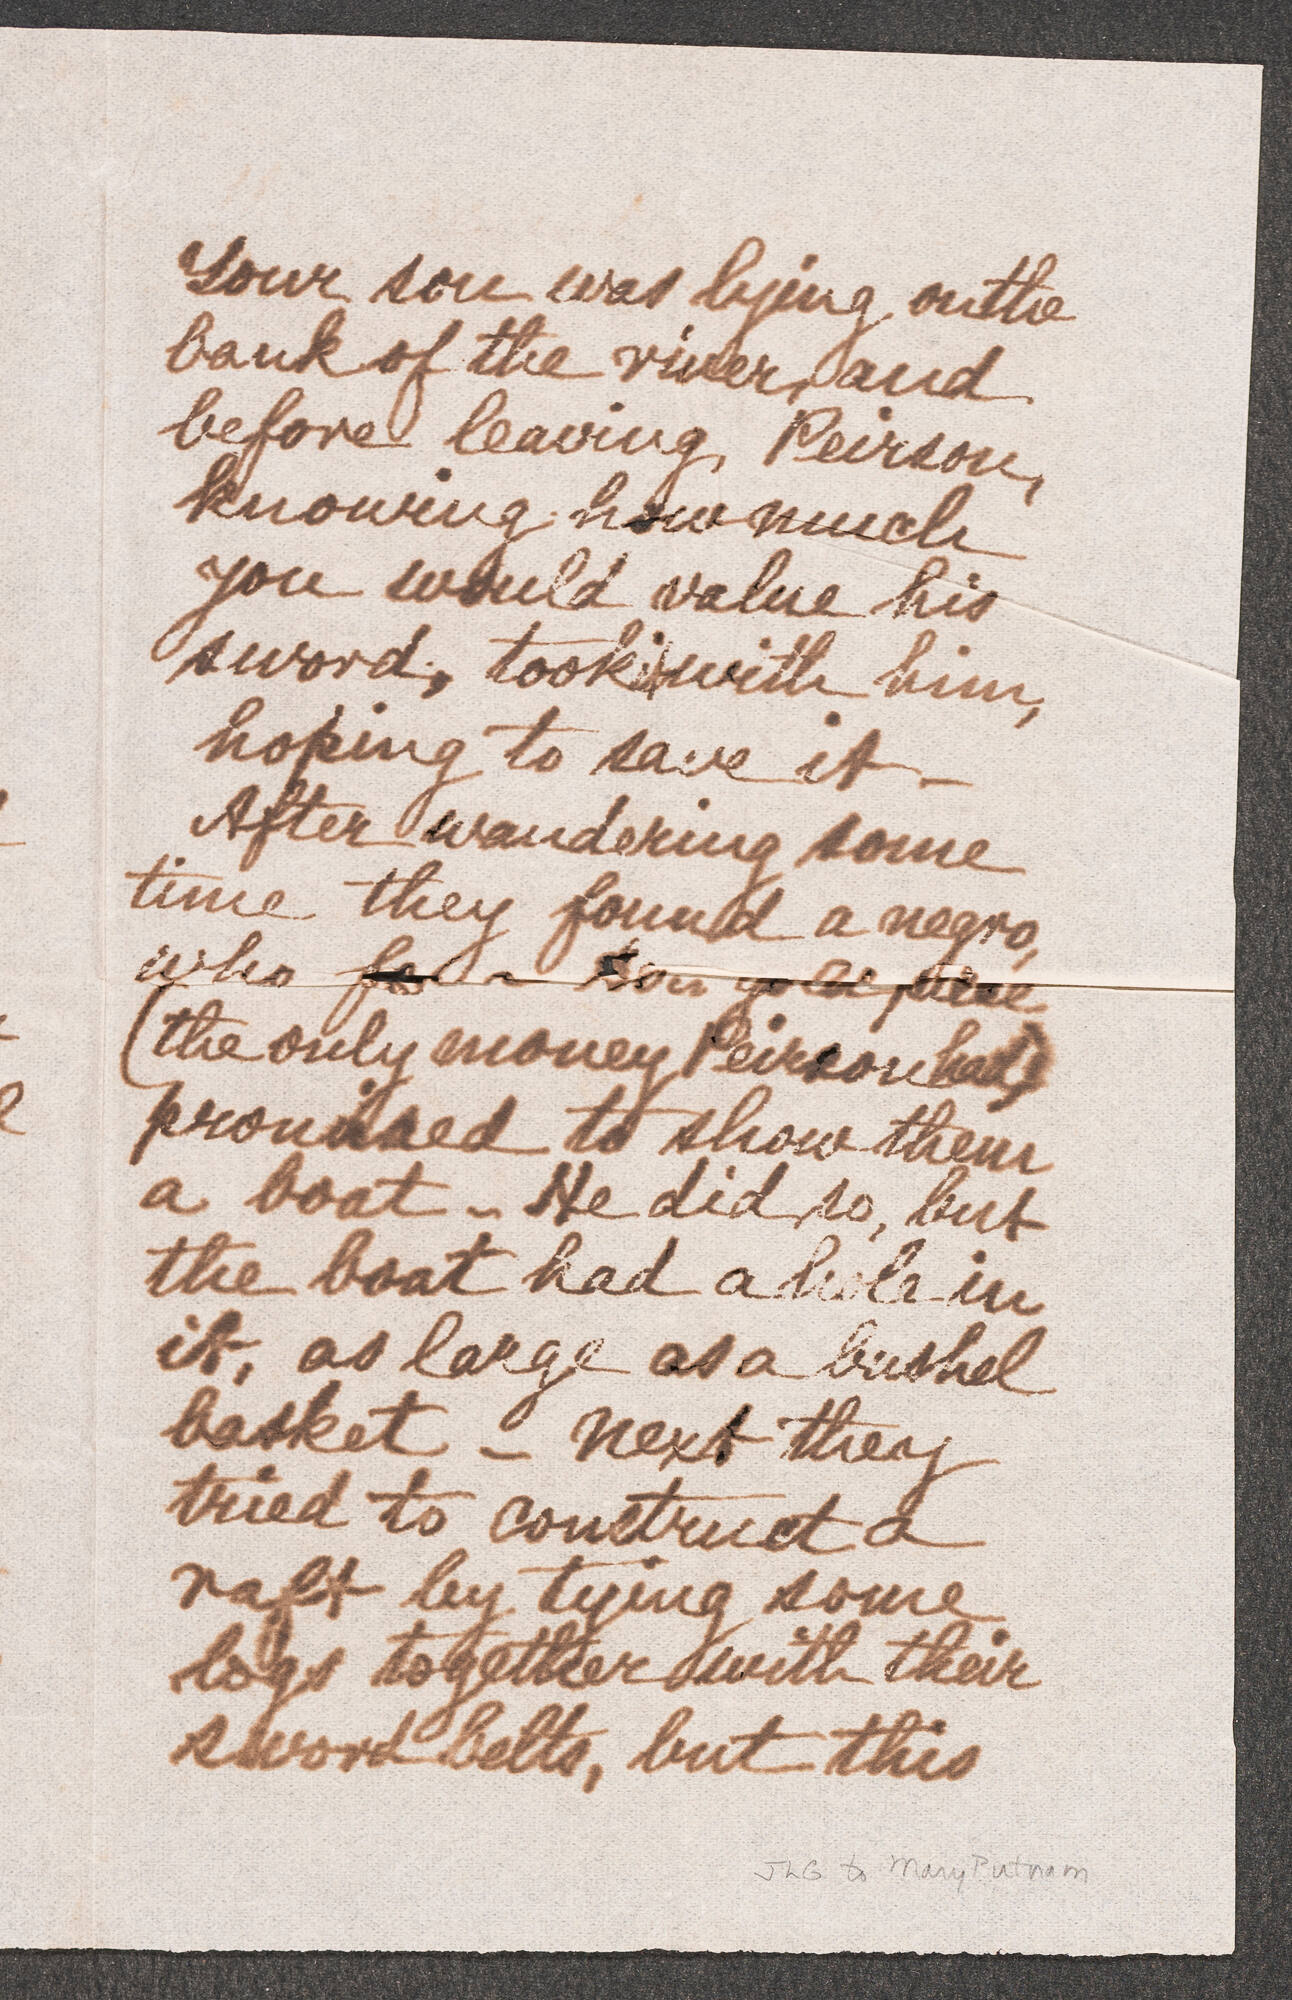 Your son was lying on the
bank of the river, and
before leaving, Peirson,
knowing how much
you would value his
sword, took it with him,
hoping to save it –
After wandering some
time they found a negro,
who for a gold piece
(the only money Peirson had)
promised to show them
a boat – He did so, but
the boat had a hole in
it, as large as a bushel
basket – next they
tried to construct a
raft by tying some
logs together with their
sword belts, but this
JLG to Mary Putnam